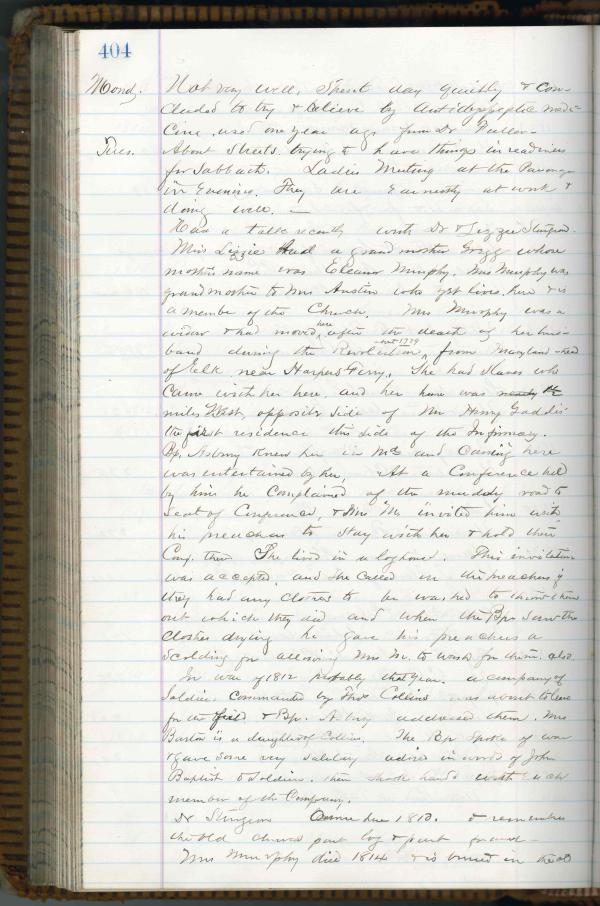 404
Mondy. Not very well, Spent day quietly & con-
cluded to try & relieve by Antidyspeptic medi-
cine, used one year ago from Dr Fuller -
Tues. About Streets trying to have things in readiness
for Sabbath. Ladies Meeting at the Parsonage
in Evening. They are Earnestly at work &
doing well. -
Had a talk recently with Dr & Lizzie Sturgeon.
Miss Lizzie had a grand mother Gregg whose
mothers name was Eleanor Murphy. Mrs Murphy was
grandmother to Mrs Austin who yet lives here & is
a member of the Church. Mrs Murphy was a
widow & had moved here after the death of her hus-
band during the Revolution, - 1779 from Maryland - head
of Elk near Harpers Ferry. She had slaves who
came with her here, and her home was
miles West, opposite side of Mr Henry Gaddis'
the first residence this side of the Infirmary.
Bp. Asbury knew her in Md and coming here
was entertained by her, At a Conference held
by him he complained of the muddy road to
Seat of Conference, & Mrs M. invited him with
his preachers to stay with her & hold their
Conf. there. She lived in a log house. This invitation
was accepted, and she called on the preachers if
they had any clothes to be washed to throw them
out which they did and when the Bp. saw the
clothes drying he gave his preachers a
scolding for allowing Mrs M. to wash for them. also
In war of 1812 probably that year. a company of
Soldiers Commanded by Thos Collins was about to leave
for the field & Bp. Asbury addressed them. Mrs
Barton is a daughter of Collins. The Bp spoke of war
& gave some very salutary advice in words of John
Baptist to Soldiers. then shook hands with each
member of the Company.
Dr Sturgeon Came here 1813. & remembers
the old church part log & part frame -
Mrs Murphy died 1814 & is buried in the old